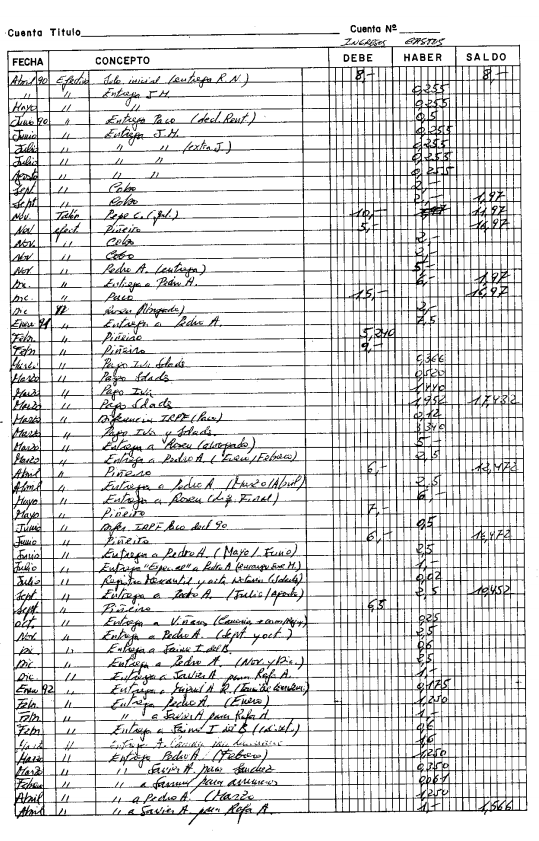 Cuenta Titulo Cuenta Nº
INGRESOS GASTOS
FECHA CONCEPTO DEBE HABER SALDO
Abril 90 Efectivo Sdo. inicial (entrega R.N) 8,- 8,-
" " Entrega J.M. 0,255
Mayo " " 0,255
Junio 90 " Entrega Paco (decl. Rent.) 0,5
Junio " Entrega J.M. 0,255
Julio " " " (extra J.) 0,255
Julio " " " 0,255
Agosto " " " 0,255
Sept " Cobo 2,-
Sept " Cobo 2,- 1,97
Nov. Talón Pepe C. 10,- 11,97
Nov efect. Piñeiro 5,- 16,97
Nov. " Cobo 2,-
Nov " Cobo 2,-
Nov " Pedro A. (entrega) 5,-
Dic. " Entrega a Pedro A. 6,- 1,97
Dic. " Paco 15,- 16,97
Dic " (Abogado) 2,-
Enero 91 " Entrega a Pedro A. 7,5
Febr. " Piñeiro 5,240
Febr " Piñeiro 9,-
" Pago Iva Sdads 5,366
Marzo " Pago Sdads 0,520
Marzo " Pago Iva 1,440
Marzo " Pago Sdads 1,952 17,432
Marzo " Diferencia IRPF (Paco) 0,12
Marzo " Pago Iva y Sdads 3,340
Marzo " Entrega a Roseu (abogado) 5,-
Marzo " Entrega a Pedro A. (Enero/Febrero) 2,5
Abril " Piñeiro 6,- 12,472
Abril " Entrega a Pedro A (Marzo/Abril) 2,5
Mayo " Entrega a Roseu (Liq. Final) 6,-
Mayo " Piñeiro 7,-
Junio " Difer. IRPF Paco decl 90 0,5
Junio " Piñeiro 6,- 16,472
Junio " Entrega a Pedro A. (Mayo/Junio) 2,5
Julio " Entrega a Pedro A 1,-
Julio " Registro Mercantil y acta notario (Sdads) 0,02
Sept " Entrega a Pedro A. (Julio/Agosto) 2,5 10,452
Sept. " Piñeiro 6,5
Oct. " Entrega a Viñas 0,25
Nov. " Entrega a Pedro A. (Sept y oct.) 2,5
Dic. " Entrega a Jaime I. del B. 0,6
Dic " Entrega a Pedro A. (Nov. y Dic.) 2,5
Dic " Entrega a Javier A para Rafa A. 1,-
Enero 92 " Entrega a Miguel A. R. 0,175
Febr. " Entrega Pedro A. (Enero) 1,250
Febr. " " a Javier A para Rafa A. 1,-
Febr " Entrega a Jaime I del B. 0,6
" Entrega A. 1,6
Marzo " Entrega Pedro A. (Febrero) 1,250
Marzo " " Javier A. para Sanchez 0,350
Febrero " " a para 0,061
Abril " " a Pedro A. (Marzo 1,250
Abril " " a Javier A. para Rafa A. 1,- 1,566